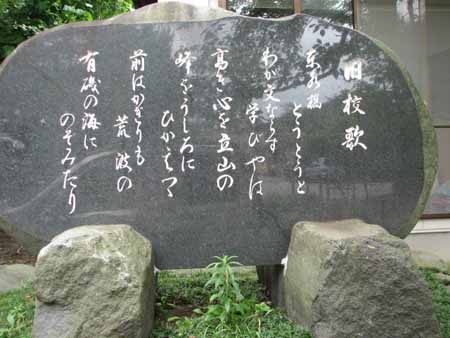 旧校歌
東に聳え とうとうと
わが文ならす 学びやは
高き心を立山の
峰をうしろに ひかへつゝ
前はかぎりも 荒波の
有磯の海に のぞみたり